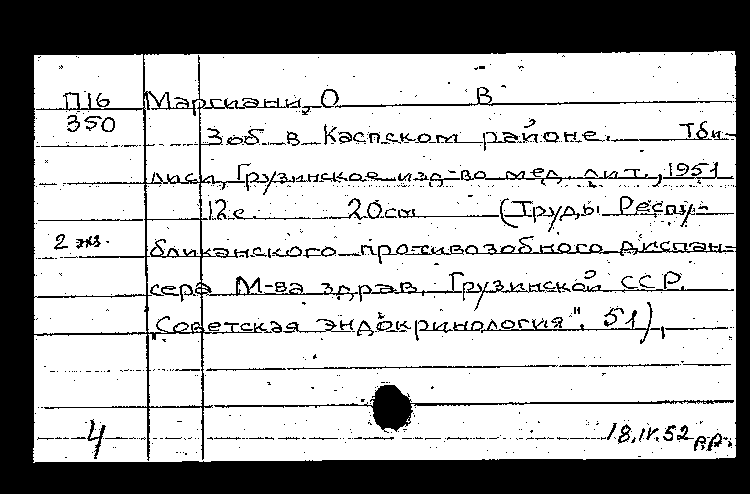 П16 Маргиани, О В
350 Зоб в Каспском районе. Тби-
лиси, Грузинское изд-во мед. лит., 1951
12с. 20см (Труды Респу-
2 экз. бликанского противозобного диспан-
сера М-ва здрав. Грузинской ССР.
"Советская эндокринология". 51).
4 18.IV.52